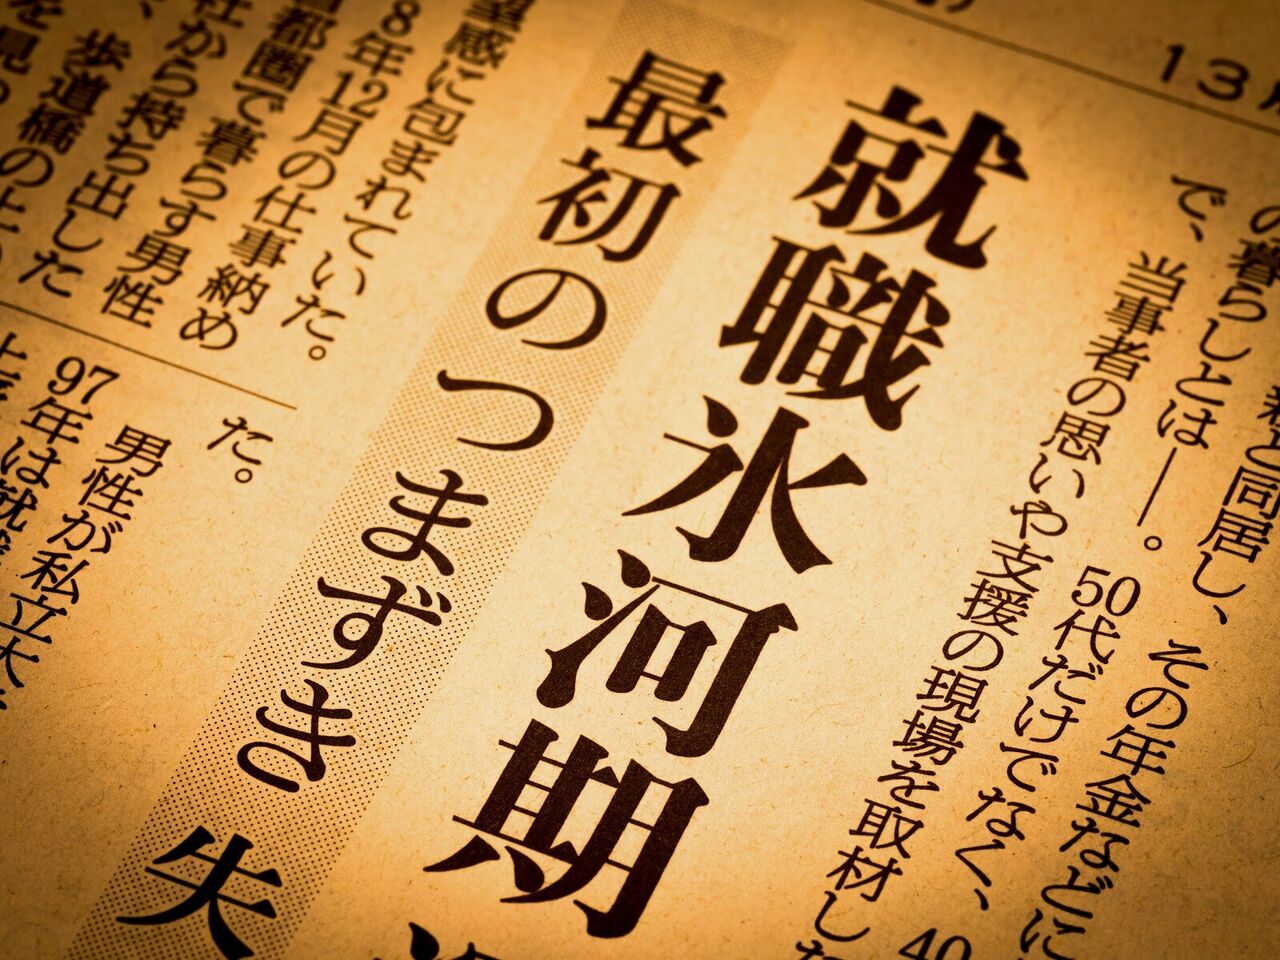 13
親と同居し、その年金などに
の暮らしとは――。50代だけでなく、40
で、当事者の思いや支援の現場を取材し
就職氷河期
最初のつまずき 失
望感に包まれていた。
8年12月の仕事納め
都圏で暮らす男性
社から持ち出した
歩道橋の上
を見
た。
男性が私立大
97年は就